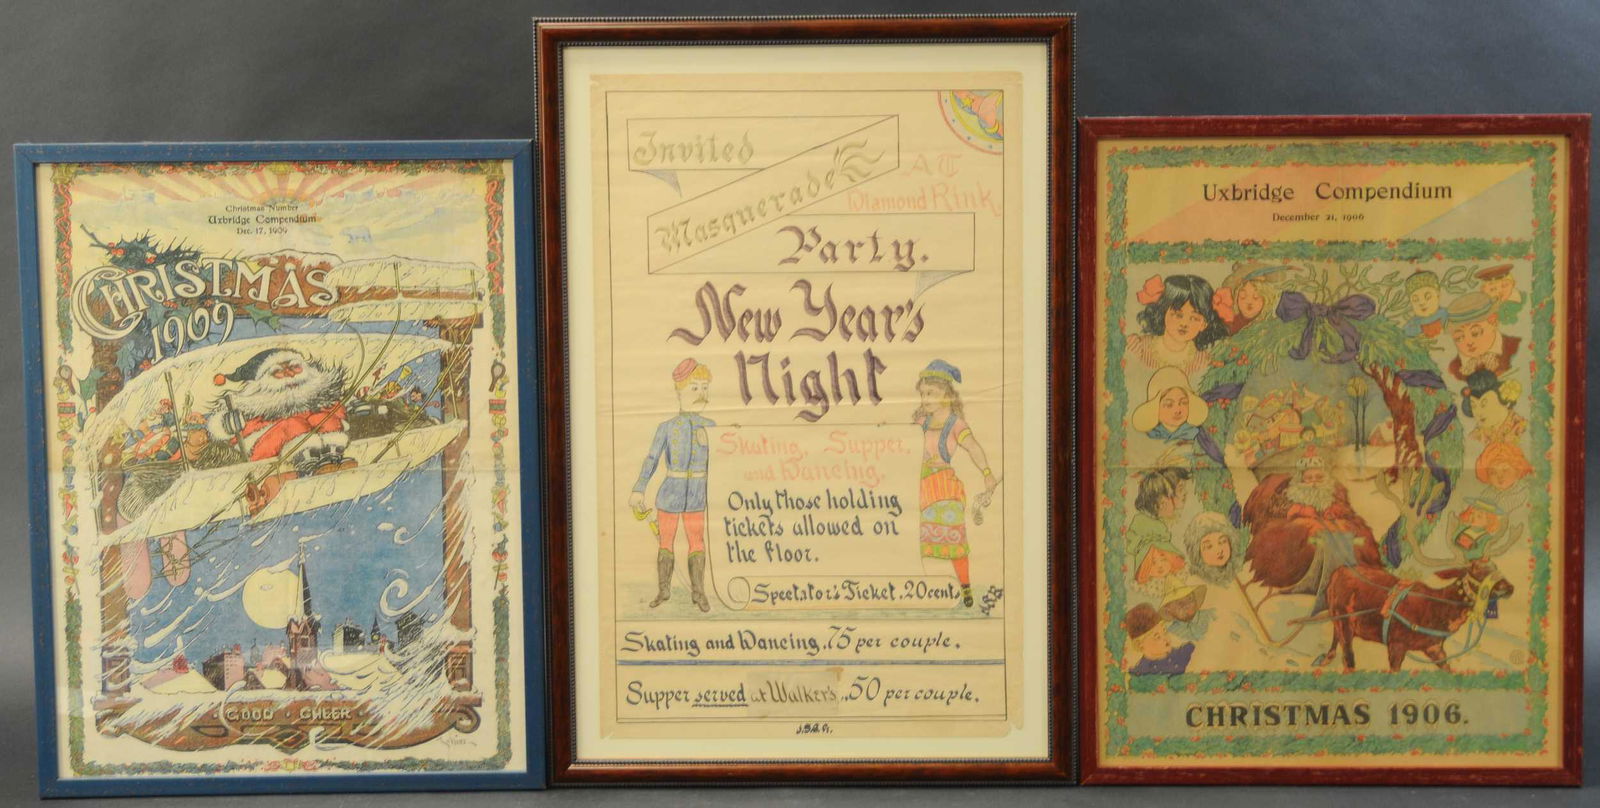 Christmas Number
Uxbridge Compendium
Dec. 17, 1909
CHRISTMAS
1909
GOOD · CHEER
Invited
Masquerade
AT
Diamond Rink.
Party.
New Year's
Night
Skating, Supper,
and Dancing.
Only those holding
tickets allowed on
the floor.
Spectator's Ticket. 20cents
Skating and Dancing. .75 per couple.
Supper served at Walker's .. .50 per couple.
Uxbridge Compendium
December 21, 1906
CHRISTMAS 1906.